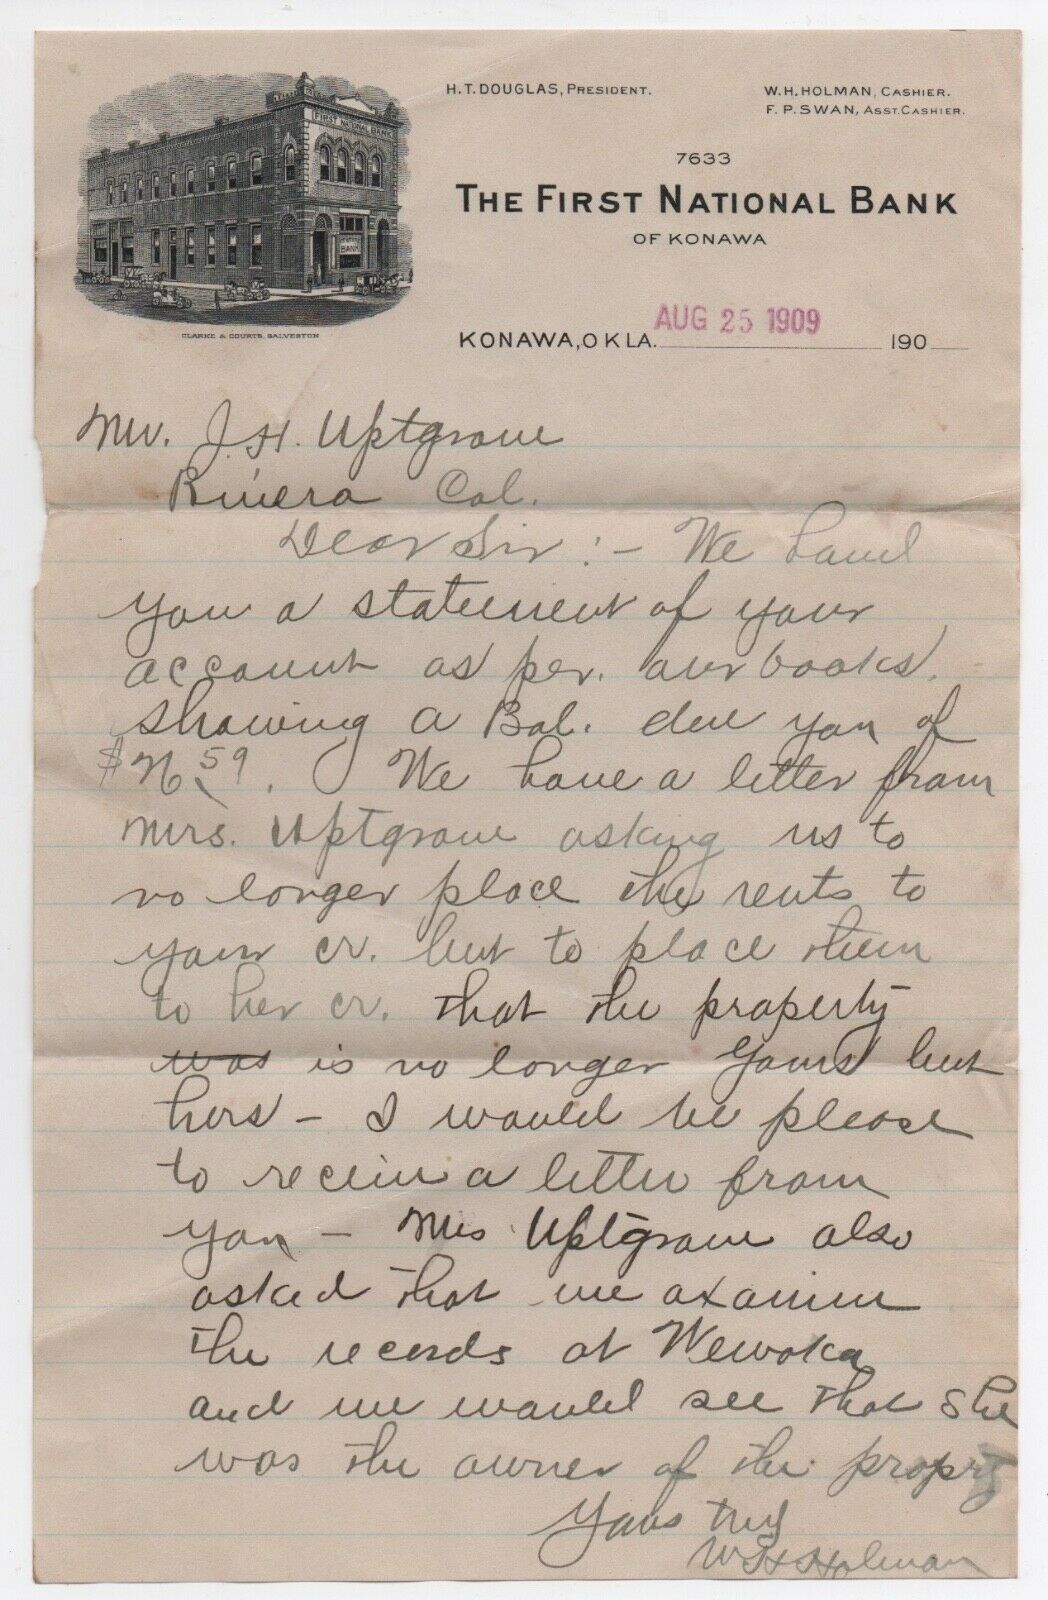 H.T. DOUGLAS, PRESIDENT.
W.H. HOLMAN, CASHIER.
F.P. SWAN, ASST. CASHIER.
FIRST NATIONAL BANK
BANK
CLARKE & COURTS, GALVESTON
7633
THE FIRST NATIONAL BANK
OF KONAWA
KONAWA, OKLA. AUG 25 1909 190
Mr. J.H. Uptgrove
Rivera Cal.
Dear Sir :- We hand
you a statement of your
account as per. our books.
showing a Bal. due you of
59. We have a letter from
Mrs. Uptgrove asking us to
no longer place the rents to
your cr. but to place them
to her cr. that the property
was is no longer yours but
hers - I would be please
to receive a letter from
you - Mrs Uptgrove also
asked that we examine
the records at Wewoka
and we would see that she
was the owner of the property
Yours truly
W H Holman